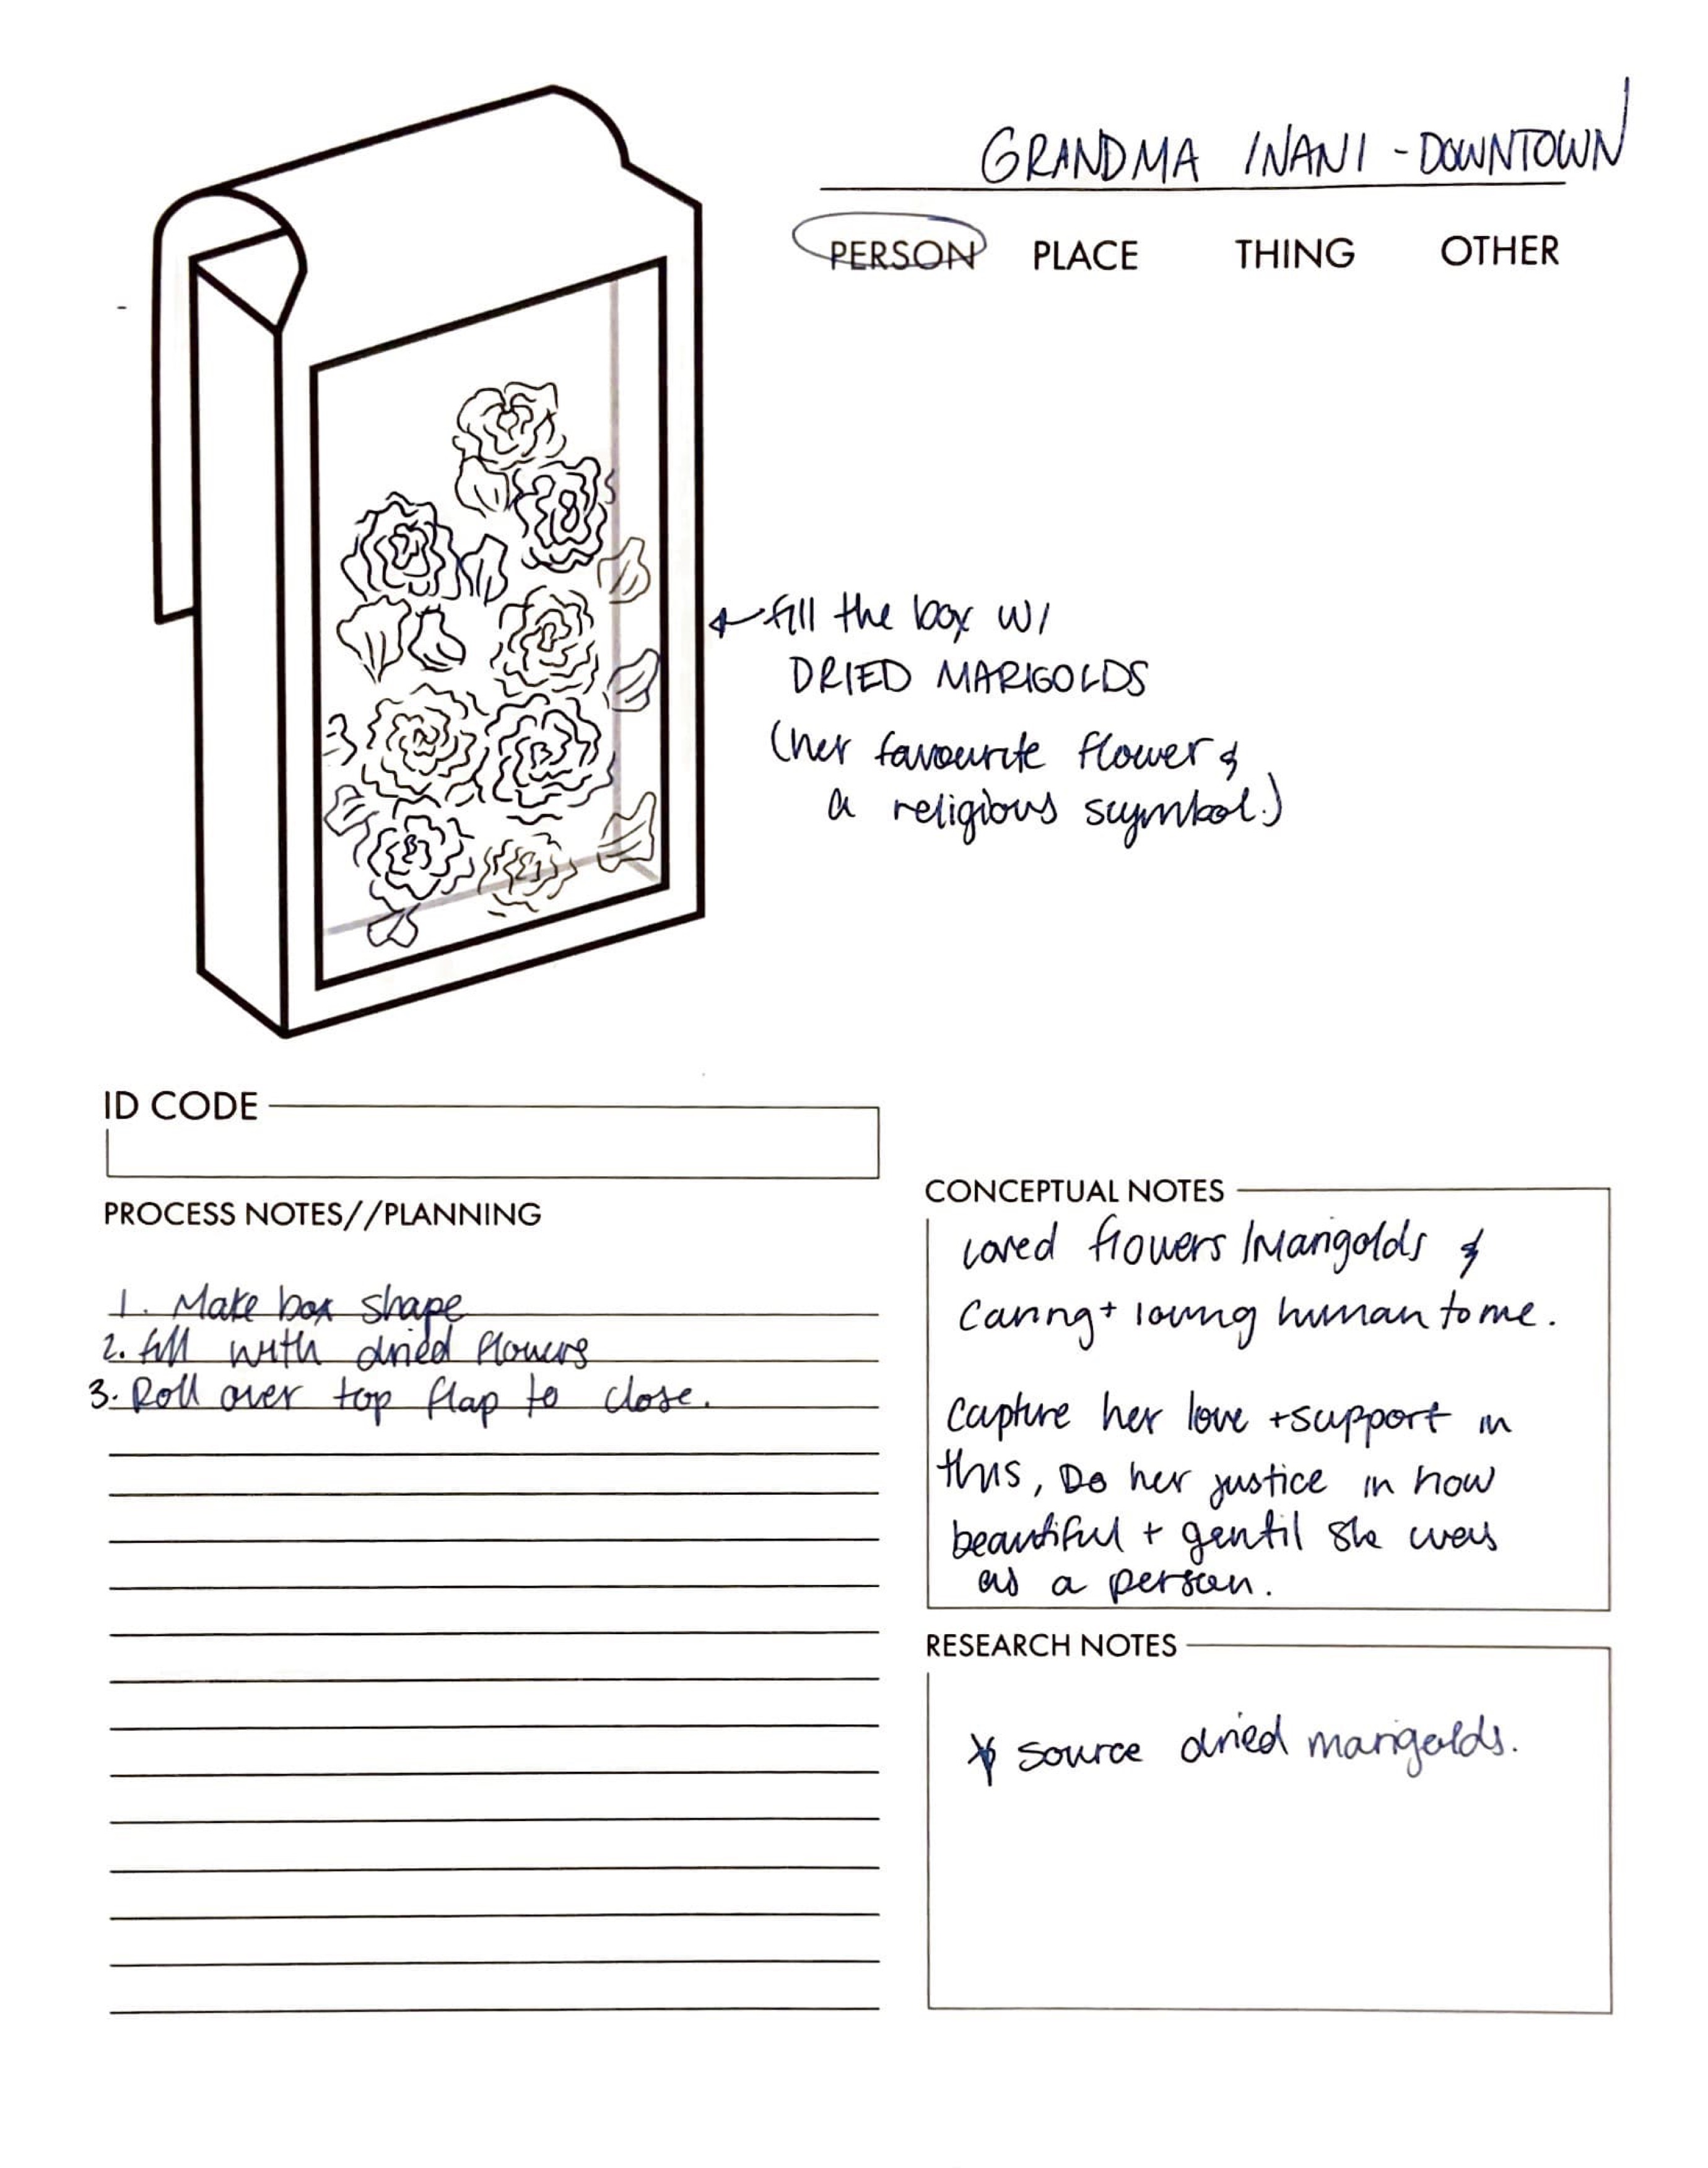 GRANDMA /NANI - DOWNTOWN
PERSON PLACE THING OTHER
fill the box w/
DRIED MARIGOLDS
(her favourite flower &
a religious symbol.)
ID CODE
PROCESS NOTES//PLANNING
1. Make box shape
2. fill with dried flowers
3. Roll over top flap to close.
CONCEPTUAL NOTES
Loved flowers /Marigolds &
Caring + loving human to me.
Capture her love + support in
this, Do her justice in how
beautiful + gentil she was
as a person.
RESEARCH NOTES
* source dried marigolds.